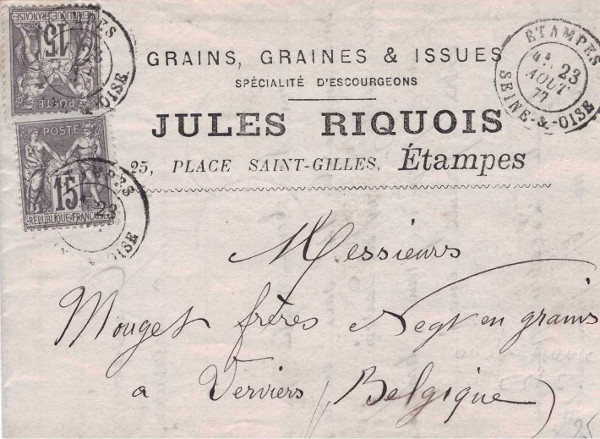 POSTE
15
RÉPUBLIQUE FRANÇAISE
GRAINS, GRAINES & ISSUES
SPÉCIALITÉ D'ESCOURGEONS
JULES RIQUOIS
25, PLACE SAINT-GILLES, Étampes
ÉTAMPES
23
AOUT
77
SEINE-&-OISE
POSTE
15
RÉPUBLIQUE FRANÇAISE
Messieurs
Mouget frères Negt en grains
a Verviers (Belgique)
25